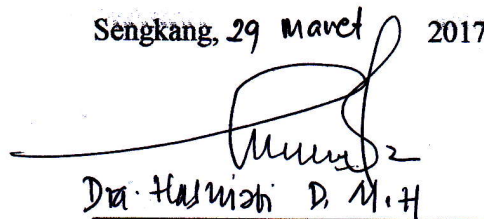 Sengkang, 29 Maret 2017
Dra. Hasniati D, M.H